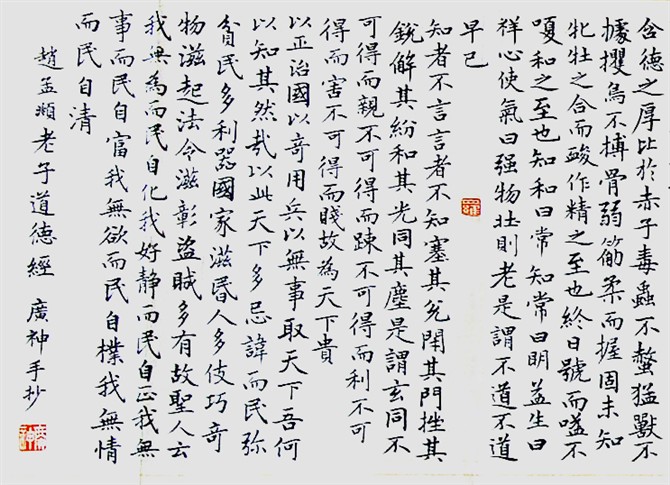 含德之厚比於赤子毒蟲不螫猛獸不
據攫鳥不搏骨弱筋柔而握固未知
牝牡之合而酸作精之至也終日號而嗌不
嗄和之至也知和曰常知常曰明益生曰
祥心使氣曰强物壯則老是謂不道不道
早已
知者不言言者不知塞其兌閉其門挫其
銳解其紛和其光同其塵是謂玄同不
可得而親不可得而踈不可得而利不可
得而害不可得而賤故為天下貴
以正治國以奇用兵以無事取天下吾何
以知其然哉以此天下多忌諱而民弥
貧民多利器國家滋昬人多伎巧奇
物滋起法令滋彰盜賊多有故聖人云
我無為而民自化我好静而民自正我無
事而民自富我無欲而民自樸我無情
而民自清
趙孟頫老子道德經 廣神手抄